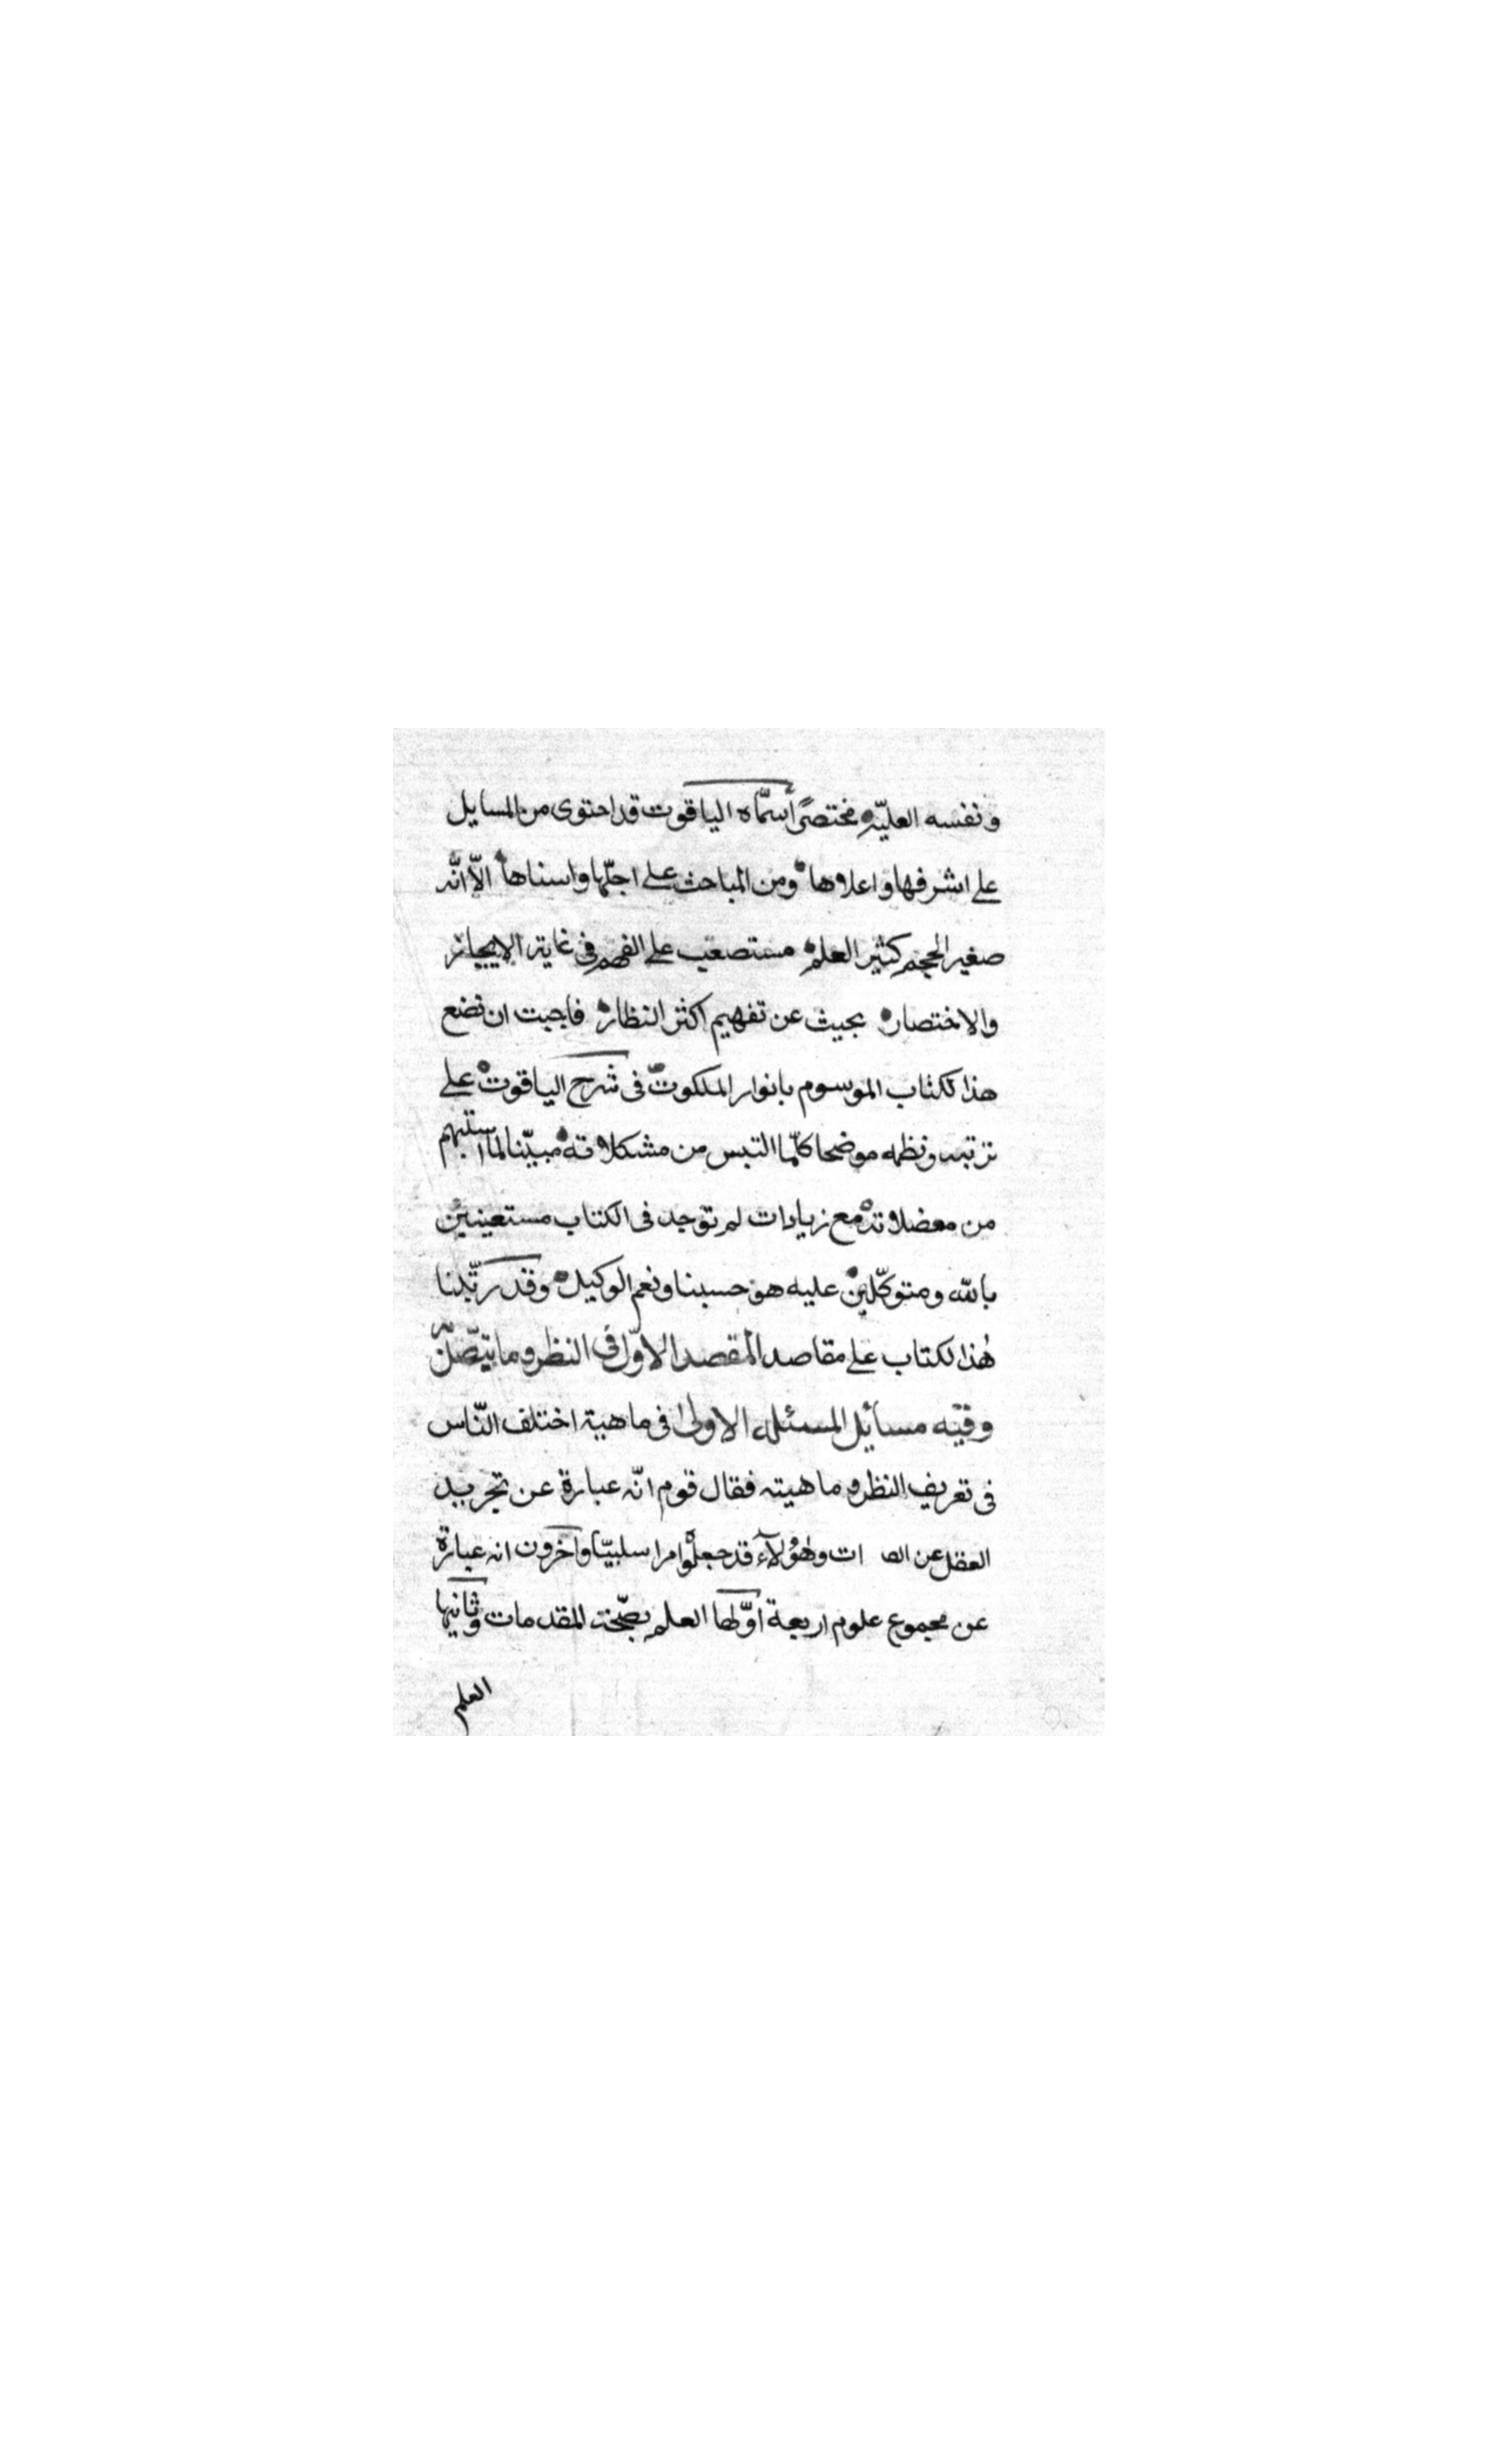 ونفسه العليّه مختصرًا أسمّاه الياقوت قد احتوى من المسايل
على اشرفها واعلاها ومن المباحث على اجلّها واسناها الّا انّه
صغير الحجم كثير العلم مستصعب على الفهم فى غاية الايجاز
والاختصار بحيث عن تفهيم اكثر النظار فاجبت ان نضع
هذا لكتاب الموسوم بانوار الملكوت فى شرح الياقوت على
ترتيبه ونظمه موضحا كلّما التبس من مشكلاته مبيّنا لما استبهم
من معضلاته مع زيادات لم توجد فى الكتاب مستعينين
بالله ومتوكّلين عليه هو حسبنا ونعم الوكيل وقد رتّبنا
هٰذا لكتاب على مقاصد المقصد الاوّل فى النظر وما يتّصل به
وفيه مسائل المسئلة الاولىٰ فى ماهية اختلف النّاس
فى تعريف النظر وماهيته فقال قوم انّه عبارة عن تجريد
العقل عن ات وهٰؤلآء قد جعلوا امرا سلبيّا وآخرون انه عبارة
عن مجموع علوم اربعة اوّلها العلم بصّحة المقدمات وثانيها
العلم